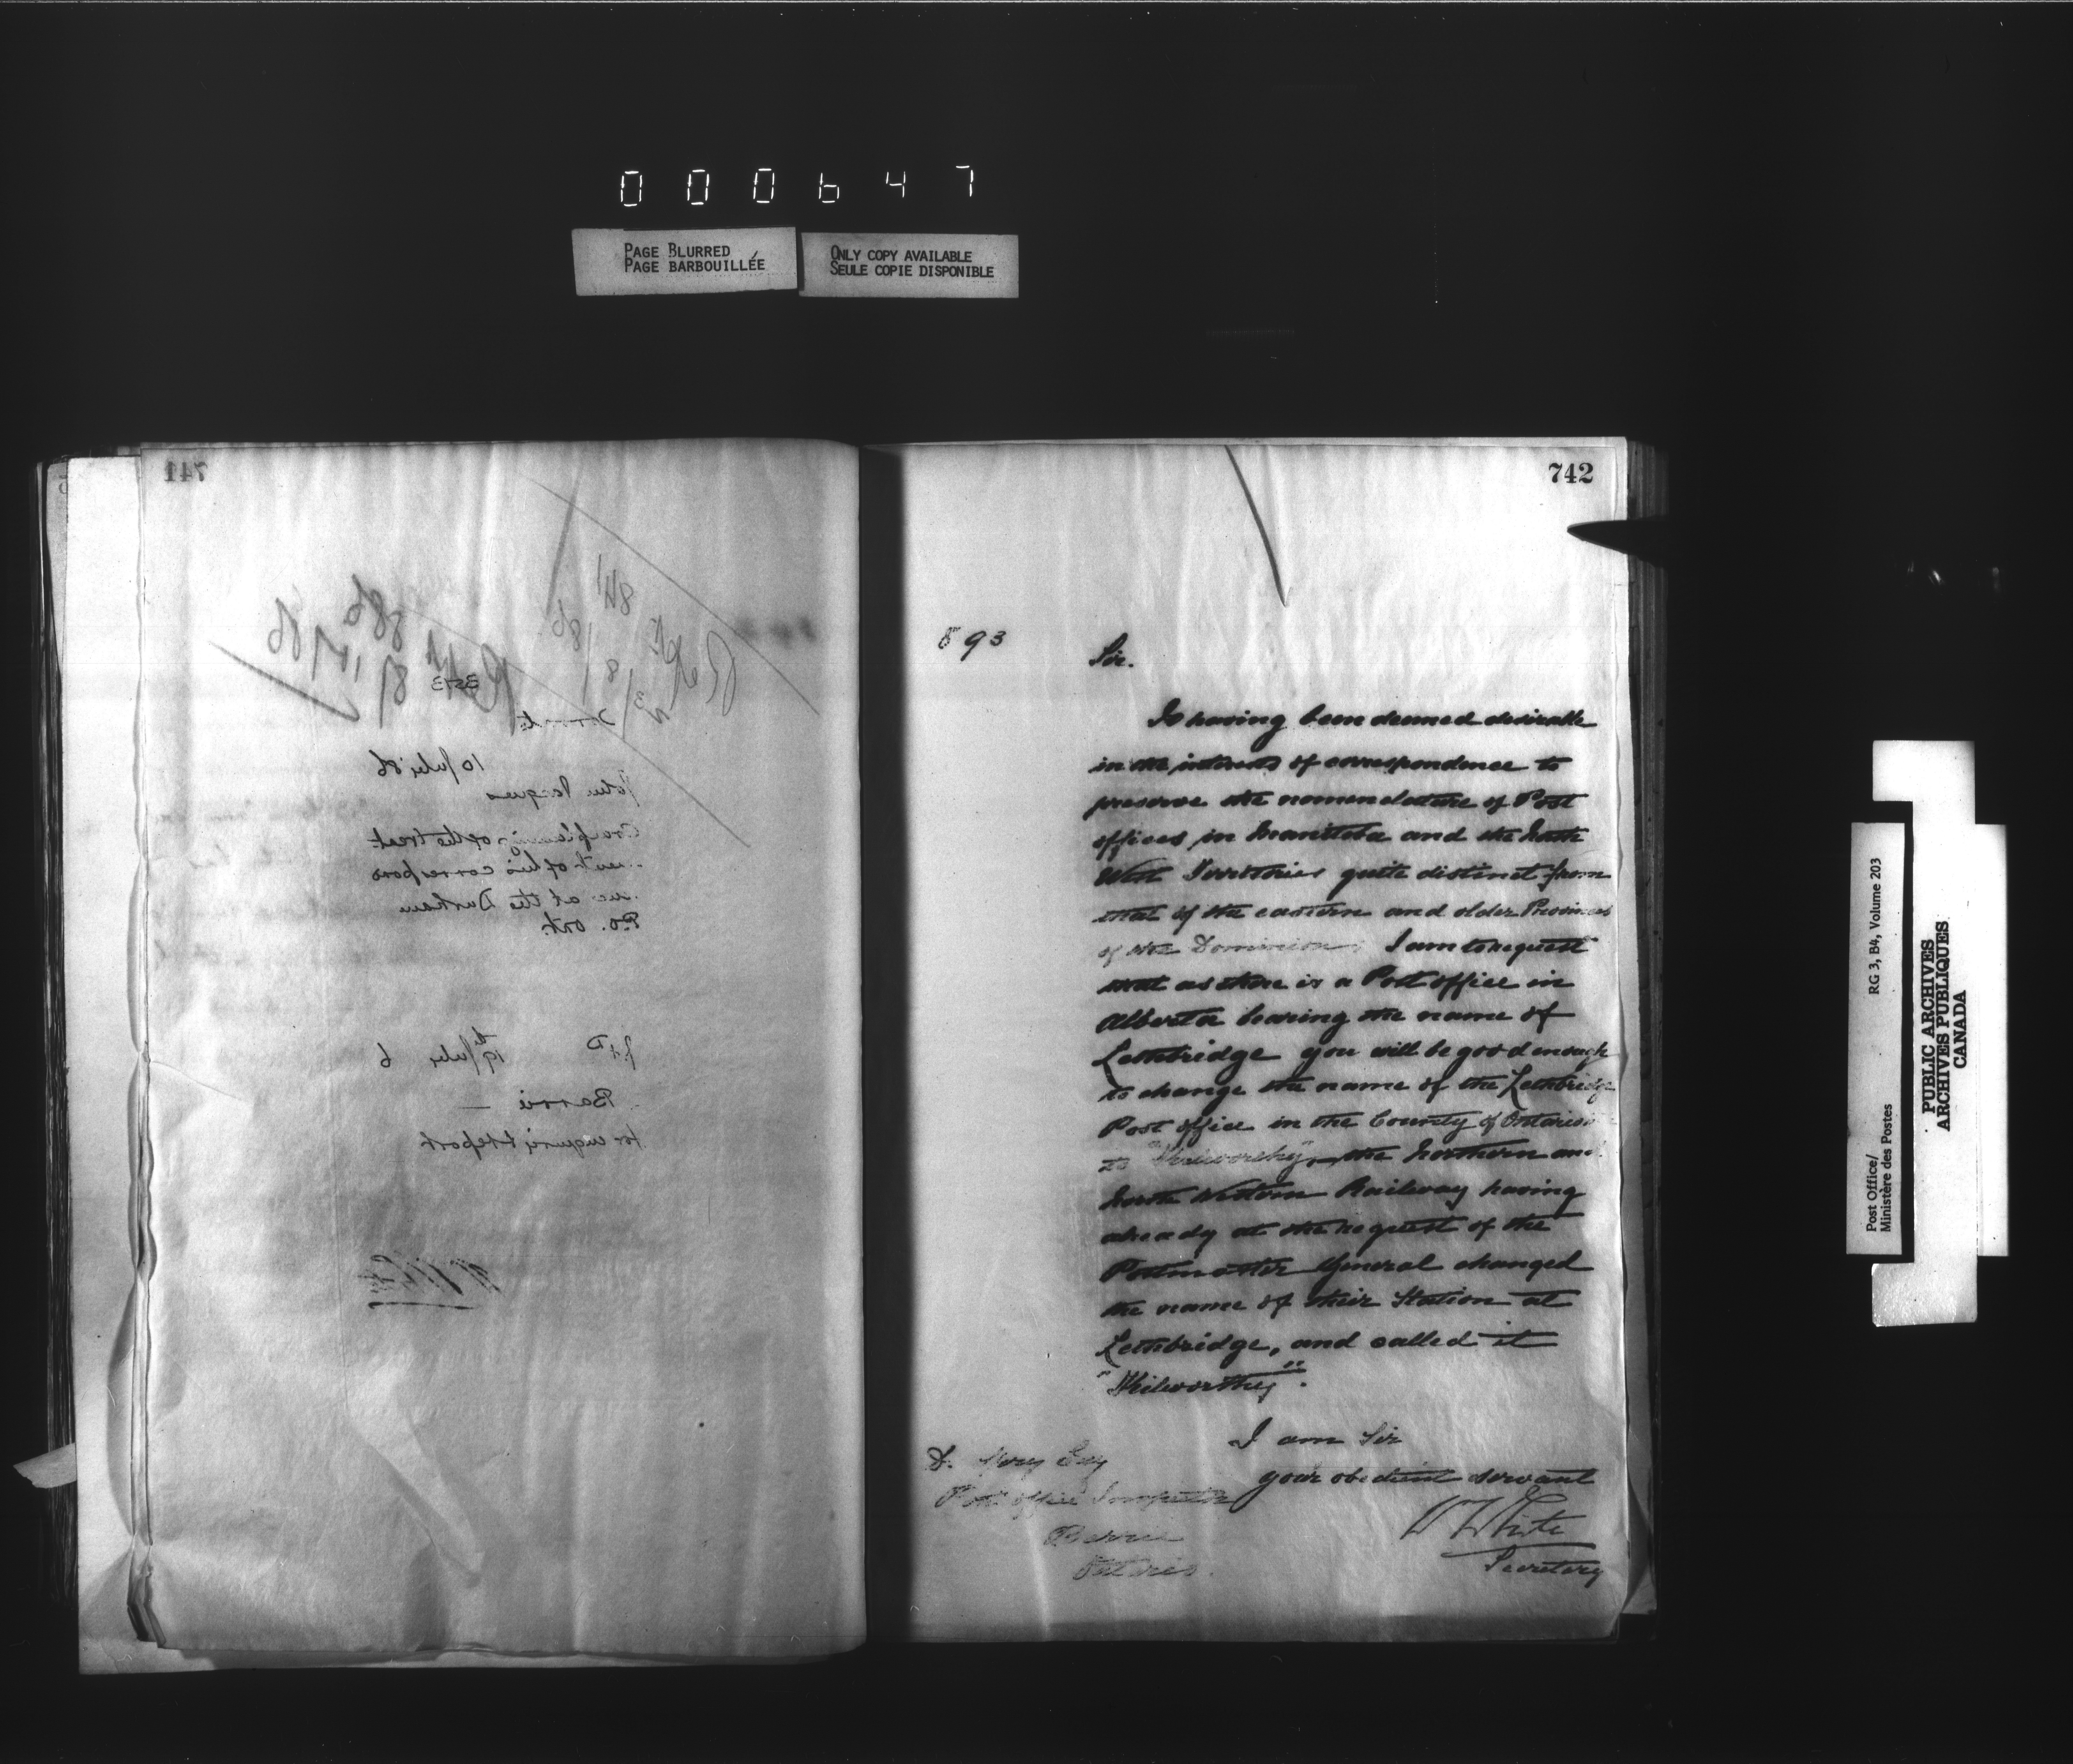 000647
PAGE BLURRED
PAGE BARBOUILLÉE
ONLY COPY AVAILABLE
SEULE COPIE DISPONIBLE
741
10 July 86
John Jacques
Complaining of the treat
ment of his correspon
at the Durham
P.O. Ont.
19th July 6
Barrie
for inquiry & report
W White
742
893
Sir.
It having been deemed desirable
in the interests of correspondence to
preserve the nomenclature of Post
offices in Manitoba and the North
West Territories quite distinct from
that of the eastern and older Provinces
of the Dominion, I am to request
that as there is a Post office in
Alberta bearing the name of
Lethbridge you will be good enough
to change the name of the Lethbridge
Post office in the County of Ontario
to "Kilworthy", the Northern and
North Western Railway having
already at the request of the
Postmaster General changed
the name of their Station at
Lethbridge, and called it
"Kilworthy".
I am Sir
your obedient servant
W White
Secretary
D. Esq
Post office Inspector
Barrie
Ontario.
Post Office/ RG 3, B4, Volume 203
Ministère des Postes
PUBLIC ARCHIVES
ARCHIVES PUBLIQUES
CANADA